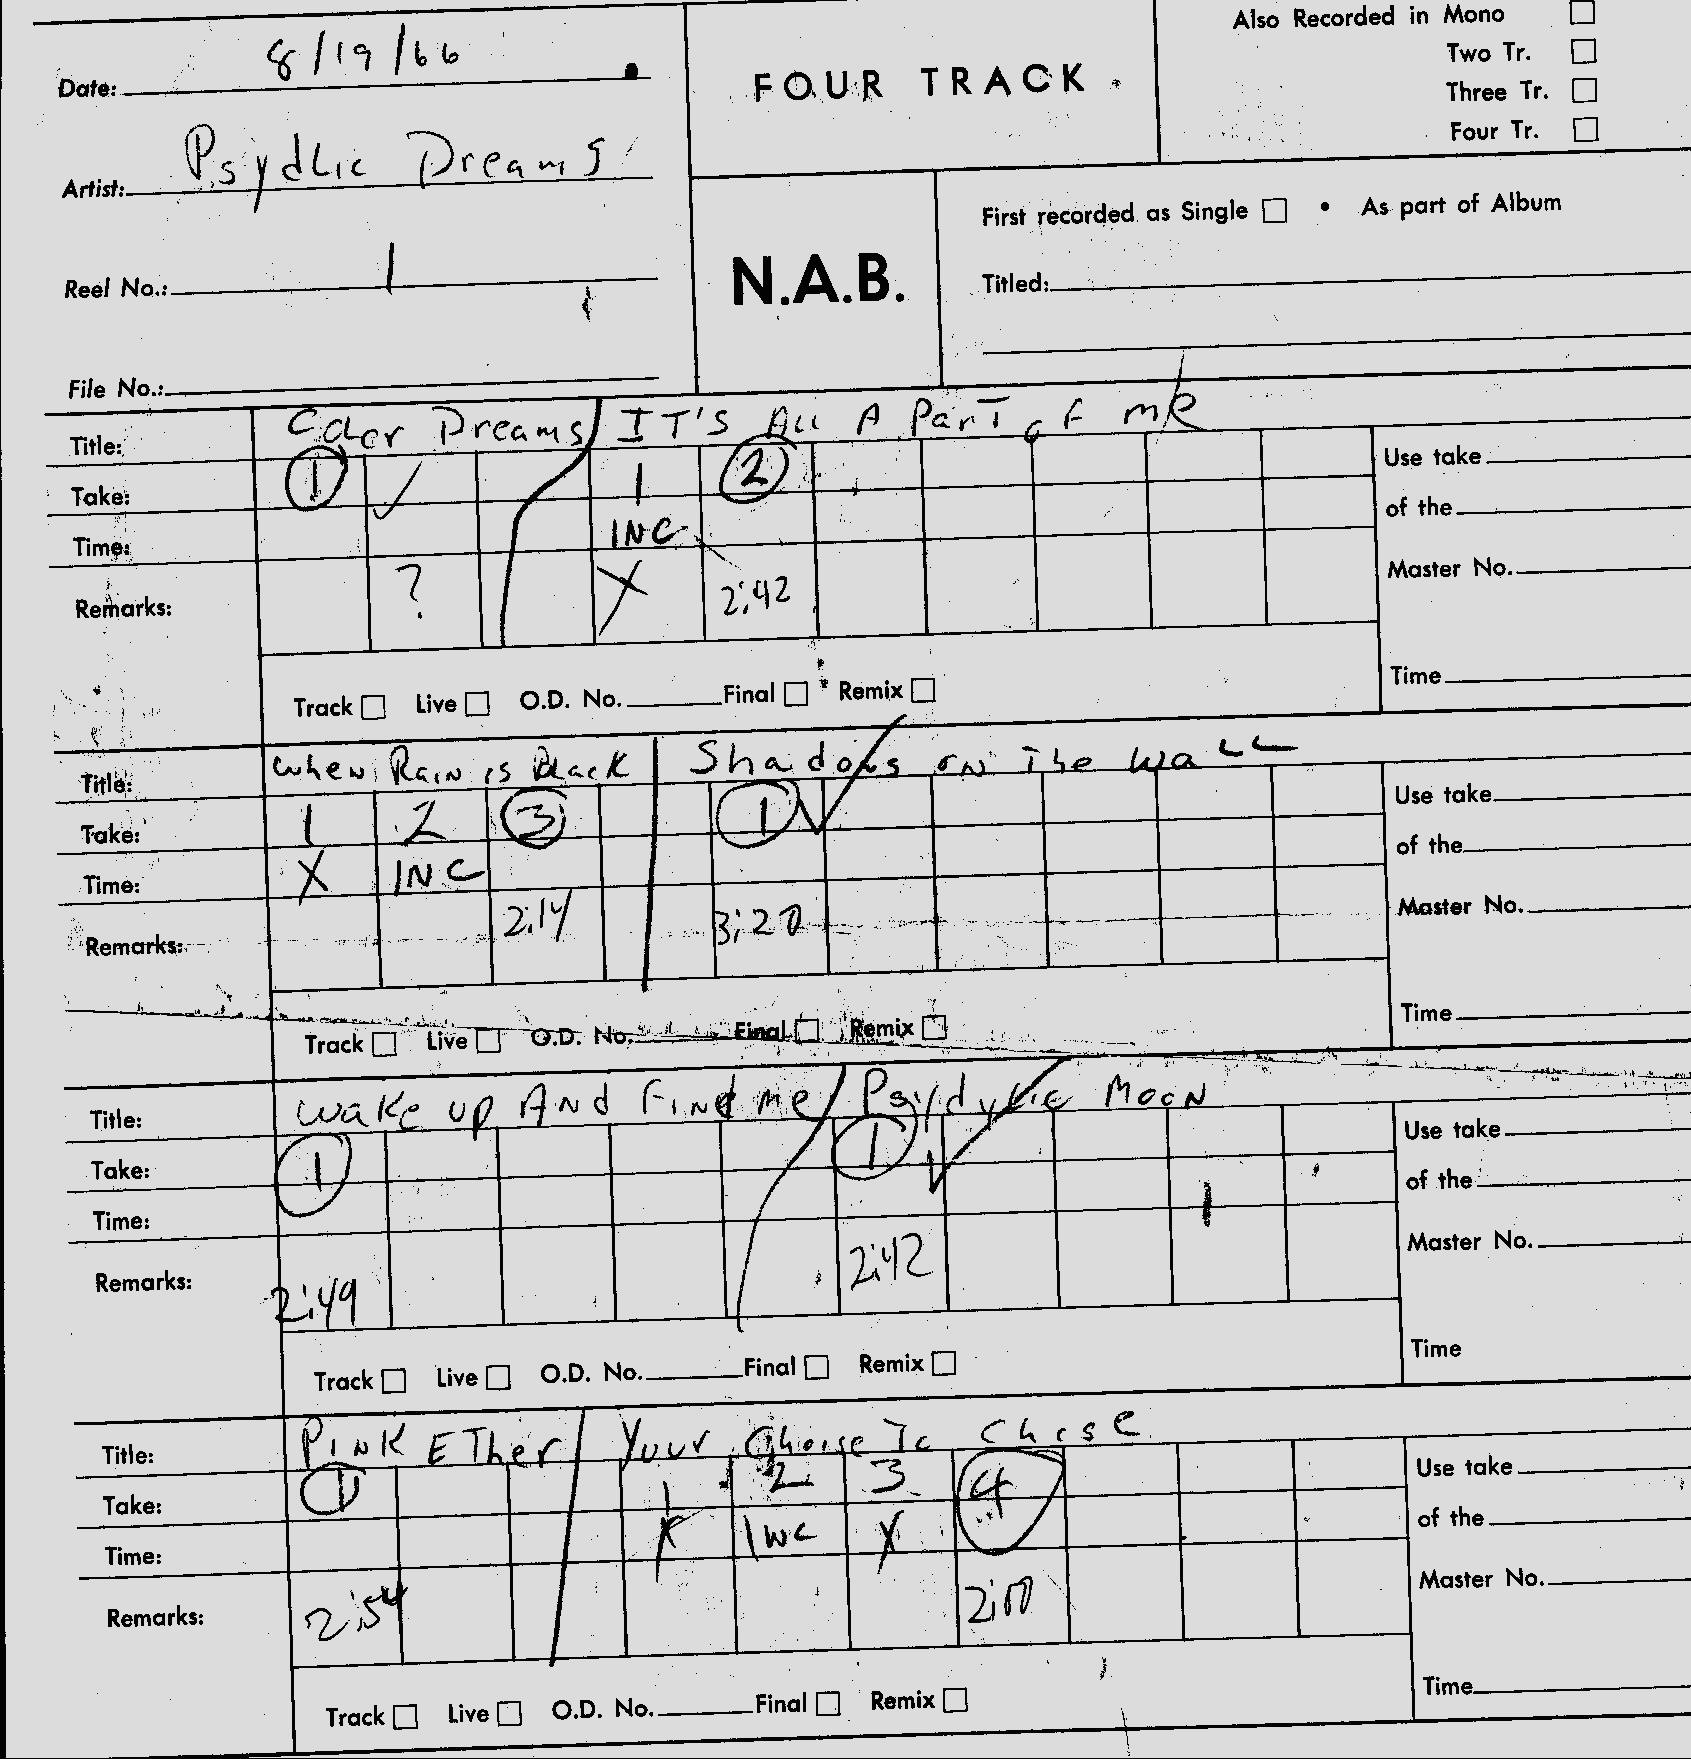 Also Recorded in Mono
Two Tr.
Three Tr.
Four Tr.
Date: 8/19/66
FOUR TRACK
Artist: Psydlic Dreams
First recorded as Single • As part of Album
Reel No.: 1
N.A.B.
Titled:
File No.:
Title: Color Dreams / IT'S All A ParT of me
Take: 1 ✓ 1 2 Use take
Time: INC of the
Remarks: ? X 2:42 Master No.
Time
Track Live O.D. No. Final Remix
Title: When Rain is Black Shadows on The Wall
Take: 1 2 3 1 ✓ Use take
Time: X INC of the
Remarks: 2:14 3:20 Master No.
Time
Track Live O.D. No. Final Remix
Title: Wake up And Find me / Psydylic Moon
Take: 1 1 ✓ Use take
Time: of the
Remarks: 2:49 2:42 Master No.
Time
Track Live O.D. No. Final Remix
Title: Pink ETher / Your Choise To Chose
Take: 1 1 2 3 4 Use take
Time: X INC X of the
Remarks: 2:54 2:00 Master No.
Time
Track Live O.D. No. Final Remix